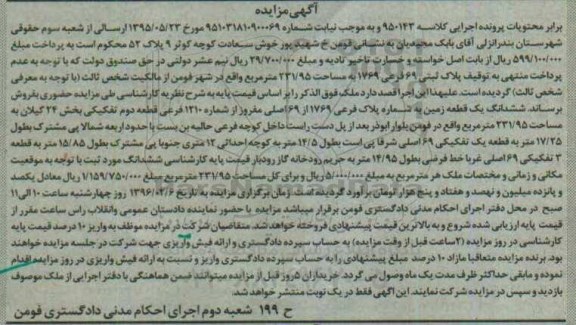 آگهی مزایده
برابر محتویات پرونده اجرایی کلاسه ۹۵۰۱۴۳ و به موجب نیابت شماره ۹۵۱۰۳۱۸۱۰۹۰۰۰۶۹ مورخ ۱۳۹۵/۰۵/۲۳ ارسالی از شعبه سوم حقوقی
شهرستان بندرانزلی آقای بابک مجیدیان به نشانی فومن خ شهید پور خوش سعادت کوچه کوثر ۹ پلاک ۵۲ محکوم است به پرداخت مبلغ
۵۹۹/۱۰۰/۰۰۰ ریال از بابت اصل خواسته و خسارت تاخیر تادیه و مبلغ ۲۹/۷۰۰/۰۰۰ ریال نیم عشر دولتی در حق صندوق دولت که با توجه به عدم
پرداخت منتهی به توقیف پلاک ثبتی ۶۹ فرعی ۱۷۶۹ به مساحت ۲۳۱/۹۵ مترمربع واقع در شهر فومن از مالکیت شخص ثالث (با توجه به معرفی
شخص ثالث) گردیده است. علیهذا این اجرا قصد دارد ملک فوق الذکر را بر اساس قیمت پایه به شرح نظریه کارشناسی طی مزایده حضوری بفروش
برساند. ششدانگ یک قطعه زمین به شماره پلاک فرعی ۱۷۶۹ از ۶۹ اصلی مفروز از شماره ۱۲۱۰ فرعی قطعه دوم تفکیکی بخش ۲۴ گیلان به
مساحت ۲۳۱/۹۵ مترمربع واقع در فومن بلوار ابوذر بعد از پل دست راست داخل کوچه فرعی حالیه بن بست با حدود اربعه شمالا پی مشترک بطول
۱۷/۲۵ متر به قطعه یک تفکیکی ۶۹ اصلی شرقا پی است بطول ۱۴/۵ متر به کوچه احداثی ۱۲ متری جنوبا پی مشترک بطول ۱۵/۸۵ متر به قطعه
۳ تفکیکی ۶۹ اصلی غربا خط فرضی بطول ۱۴/۹۵ متر به حریم رودخانه گاز رودبار قیمت پایه کارشناسی ششدانگ مورد ثبت با توجه به موقعیت
مکانی و زمانی و مختصات ملک هر مترمربع به مبلغ ۵/۰۰۰/۰۰۰ ریال و برای کل مساحت ۲۳۱/۹۵ مترمربع مبلغ ۱/۱۵۹/۷۵۰/۰۰۰ ریال معادل یکصد
و پانزده میلیون و نهصد و هفتاد و پنج هزار تومان برآورد گردیده است. زمان برگزاری مزایده به تاریخ ۱۳۹۶/۰۲/۰۶ روز چهارشنبه ساعت ۱۰ الی ۱۱
صبح در محل دفتر اجرای احکام مدنی دادگستری فومن برقرار میباشد مزایده با حضور نماینده دادستان عمومی وانقلاب راس ساعت مقرر از
قیمت پایه ارزیابی شده شروع و به بالاترین قیمت پیشنهادی فروخته خواهد شد. متقاضیان شرکت در مزایده موظف به واریز ۱۰ درصد قیمت پایه
کارشناسی در روز مزایده (۲ ساعت قبل از وقت مزایده) به حساب سپرده دادگستری و ارائه فیش واریزی جهت شرکت در جلسه مزایده خواهند
بود. برنده مزایده متعاقبا مازاد ۱۰ درصد مبلغ پیشنهادی را به حساب سپرده دادگستری واریز و نسبت به ارائه فیش واریزی در روز مزایده اقدام
نموده و مابقی حداکثر ظرف مدت یک ماه وصول می گردد. خریداران ۵ روز قبل از مزایده میتوانند ضمن هماهنگی با دفتر اجرایی از ملک موصوف
بازدید و سپس در مزایده شرکت نمایند. این آگهی فقط در یک نوبت منتشر خواهد شد.
ح ۱۹۹ شعبه دوم اجرای احکام مدنی دادگستری فومن